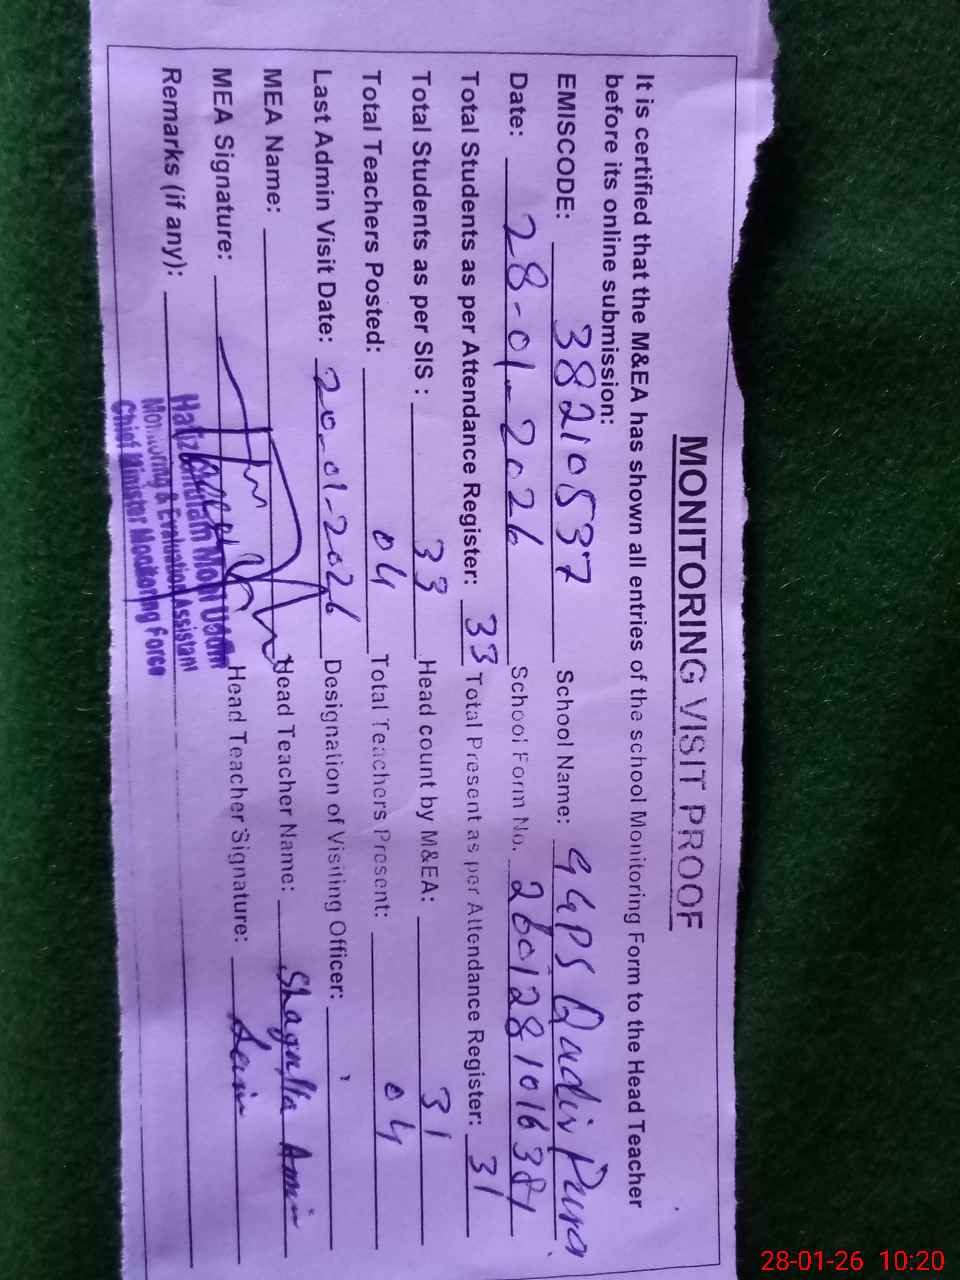 MONITORING VISIT PROOF
It is certified that the M&EA has shown all entries of the school Monitoring Form to the Head Teacher
before its online submission:
EMISCODE: 38210537 School Name: GGPS Qadir Pura
Date: 28-01-2026 School Form No. 2601281016381
Total Students as per Attendance Register: 33 Total Present as per Attendance Register: 31
Total Students as per SIS : 33 Head count by M&EA: 31
Total Teachers Posted: 04 Total Teachers Present: 04
Last Admin Visit Date: 20-01-2026 Designation of Visiting Officer:
MEA Name: Head Teacher Name: Shagufta Amin
MEA Signature: Head Teacher Signature:
Remarks (if any):
Monitoring & Evaluation Assistant
Chief Minister Monitoring Force
28-01-26 10:20